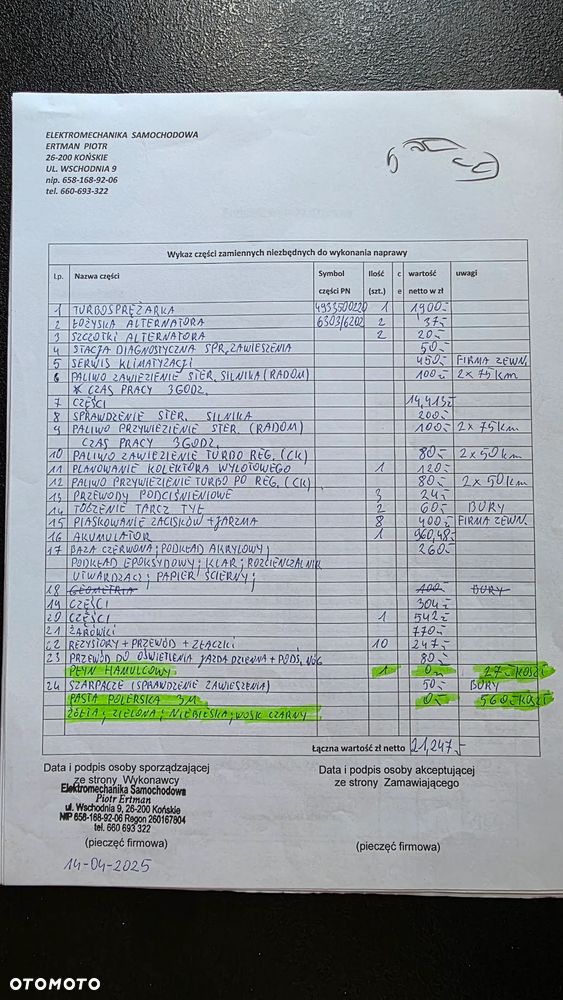 ELEKTROMECHANIKA SAMOCHODOWA
ERTMAN PIOTR
26-200 KOŃSKIE
UL. WSCHODNIA 9
nip. 658-168-92-06
tel. 660-693-322
Wykaz części zamiennych niezbędnych do wykonania naprawy
Lp. Nazwa części Symbol części PN Ilość (szt.) c e wartość netto w zł uwagi
1 TURBOSPRĘŻARKA 4933500220 1 1900,-
2 ŁOŻYSKA ALTERNATORA 6303/6202 2 37,-
3 SZCZOTKI ALTERNATORA 2 20,-
4 STACJA DIAGNOSTYCZNA SPR. ZAWIESZENIA 50,-
5 SERWIS KLIMATYZACJI 450,- FIRMA ZEWN.
6 PALIWO ZAWIEZIENIE STER. SILNIKA (RADOM) 100,- 2x75km
* CZAS PRACY 3GODZ.
7 CZĘŚCI 14,413,-
8 SPRAWDZENIE STER. SILNIKA 200,-
9 PALIWO PRZYWIEZIENIE STER. (RADOM) 100,- 2x75km
CZAS PRACY 3GODZ.
10 PALIWO ZAWIEZIENIE TURBO REG. (CK) 80,- 2x50km
11 PLANOWANIE KOLEKTORA WYLOTOWEGO 1 120,-
12 PALIWO PRZYWIEZIENIE TURBO PO REG. (CK) 80,- 2x50km
13 PRZEWODY PODCIŚNIENIOWE 3 24,-
14 TOCZENIE TARCZ TYŁ 2 60,- BURY
15 PIASKOWANIE ZACISKÓW + JARZMA 8 400,- FIRMA ZEWN.
16 AKUMULATOR 1 960,48,-
17 BAZA CZERWONA; PODKŁAD AKRYLOWY; 260,-
PODKŁAD EPOKSYDOWY; KLAR; ROZCIEŃCZALNIK
UTWARDZACZ; PAPIER ŚCIERNY;
18 GEOMETRIA 100,- BURY
19 CZĘŚCI 304,-
20 CZĘŚCI 1 542,-
21 ŻARÓWKI 770,-
22 REZYSTORY + PRZEWÓD + ZŁĄCZKI 10 247,-
23 PRZEWÓD DO OŚWIETLENIA JAZDA DZIENNA + PODŚ. NÓG 80,-
PŁYN HAMULCOWY 1 0,- 27,- KOSZT
24 SZARPACZE (SPRAWDZENIE ZAWIESZENIA) 50,- BURY
PASTA POLERSKA 3M 0,- 560,- KOSZT
ŻÓŁTA; ZIELONA; NIEBIESKA; WOSK CZARNY
Łączna wartość zł netto 21,247,-
Data i podpis osoby sporządzającej
ze strony Wykonawcy
Data i podpis osoby akceptującej
ze strony Zamawiającego
Elektromechanika Samochodowa
Piotr Ertman
ul. Wschodnia 9, 26-200 Końskie
NIP 658-168-92-06 Regon 260167804
tel. 660 693 322
(pieczęć firmowa)
(pieczęć firmowa)
14-04-2025
OTOMOTO